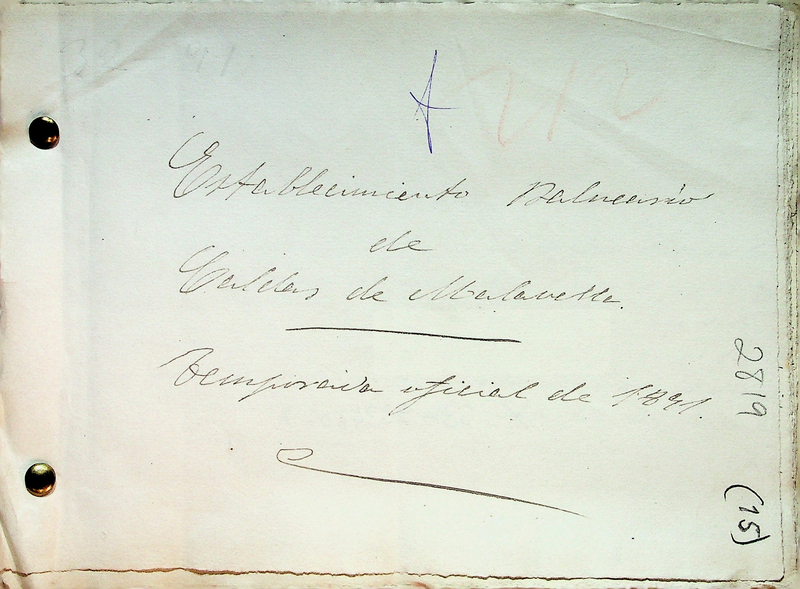 Establecimiento Balneario
de
Caldas de Malavella.
Temporada oficial de 1891.
2819
(15)